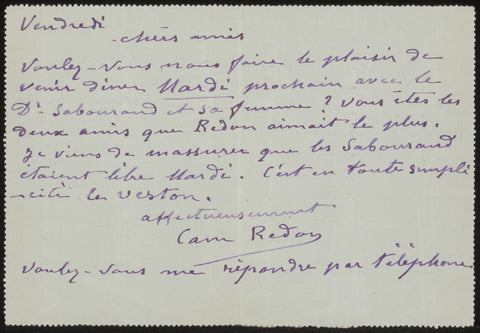 Vendredi
chers amis
Voulez-vous nous faire le plaisir de
venir diner Mardi prochain avec le
Dr Sabourand et sa femme ? Vous êtes les
deux amis que Redon aimait le plus.
Je viens de massurer que les Sabourand
étaient libre Mardi. C'est en toute simpli
-cité le veston.
affectueusement
Cam Redon
Voulez-vous me répondre par téléphone